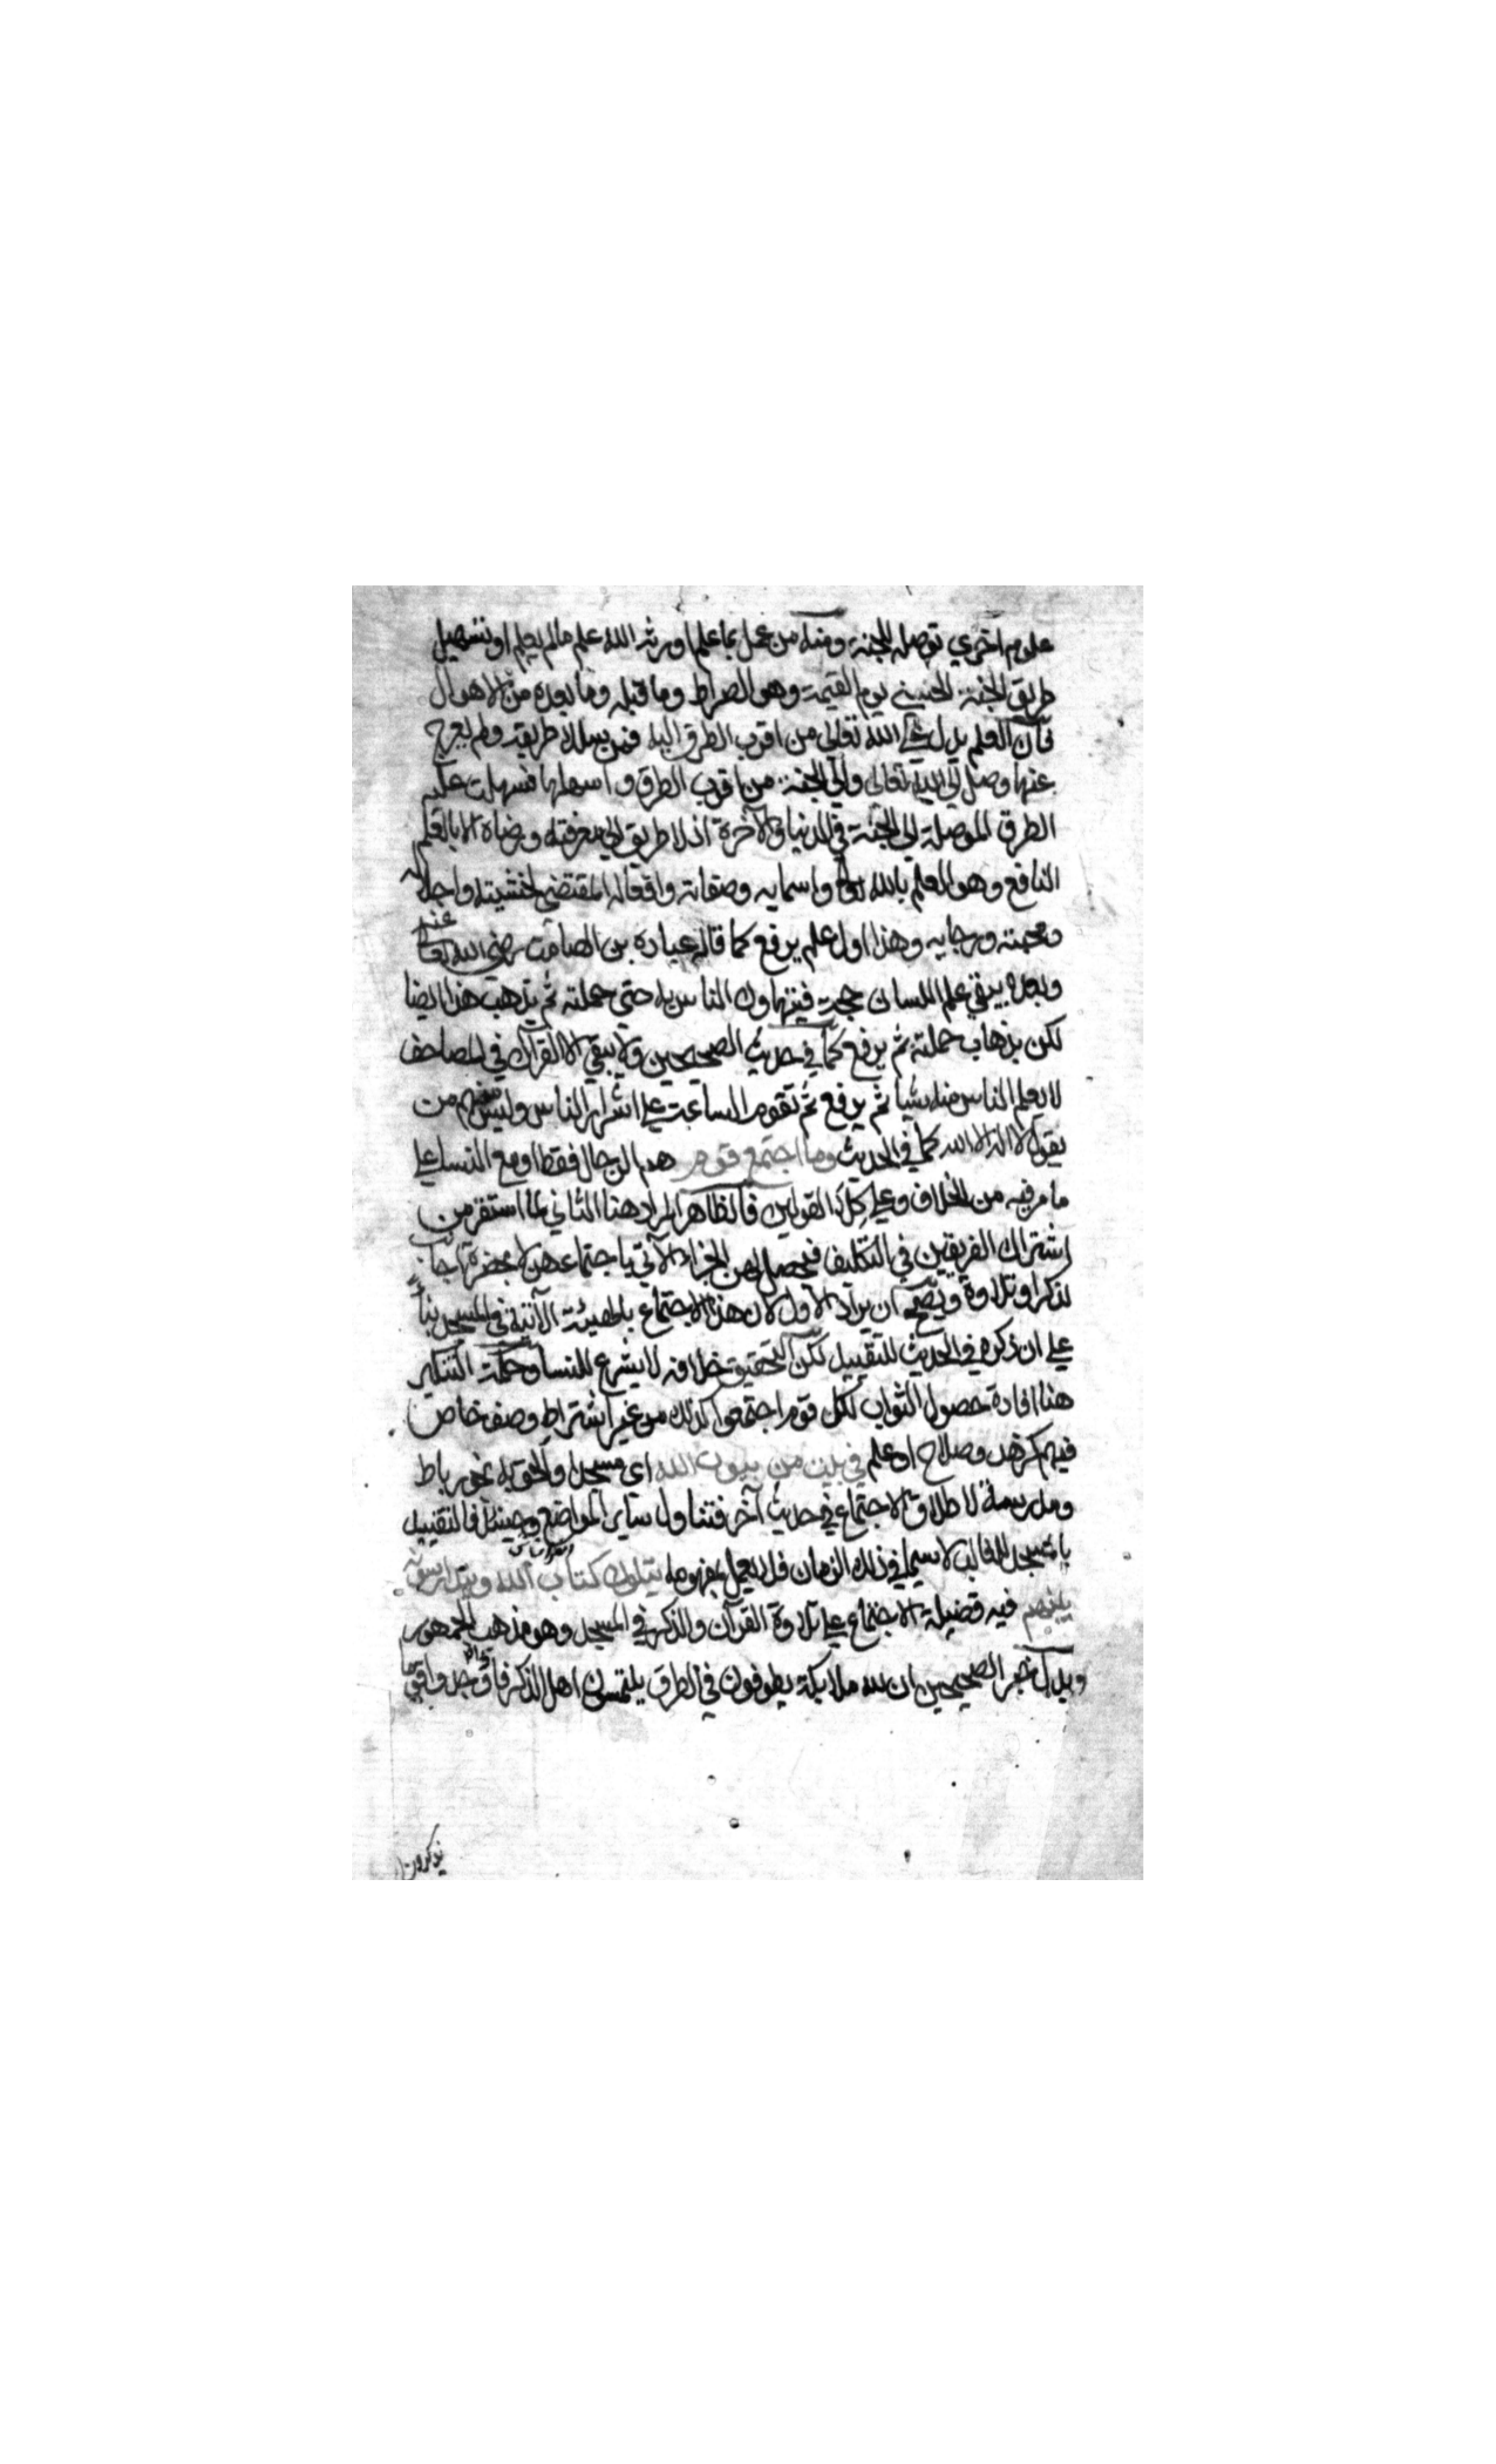 علوم اخري توصله للجنة ومنه من عمل بما علم اورثه الله علم مالم يعلم او تسهيل
طريق الجنة الحسي يوم القيمة وهو الصراط وما قبله وما بعده من الاهوال
فان العلم يدل علي الله تعالي من اقرب الطرق اليه فمن سلك طريقه ولم يعرج
عنها وصل الي الله تعالي والي الجنة من اقرب الطرق واسهلها فسهلت عليه
الطرق الموصلة الي الجنة في الدنيا والاخرة اذ لا طريق الي معرفته ورضاه الا بالعلم
النافع وهو العلم بالله تعالي واسمايه وصفاته وافعاله المقتضي لخشيته واجلاله
ومحبته ورجايه وهذا اول علم يرفع كما قاله عبادة بن الصامت رضي الله تعالي عنه
وبعده يبقي علم اللسان حجة فيتهاون الناس به حتي حملته ثم يذهب هذا ايضا
لكن بذهاب حملته ثم يرفع كما في حديث الصحيحين ولا يبقي الا القرآن في المصاحف
لا يعلم الناس منه شيا ثم يرفع ثم تقوم الساعة علي اشرار الناس وليس فيهم من
يقول لا اله الا الله كما في الحديث وما اجتمع قوم هم الرجال فقط او مع النسا علي
ما مر فيه من الخلاف وعلي كل القولين فالظاهر المراد هنا الثاني لما استقر من
اشتراك الفريقين في التكليف فيحصل لهن الجزاء الآتي باجتماعهن لا بحضرة اجانب
لذكر او تلاوة ويتجه ان يراد الاول لان هذا الاجتماع بالهيئة الآتية في المسجد بناء
علي ان ذكره في الحديث للتقييد لكن التحقيق خلافه لا يشرع للنسا وحكمة التنكير
هنا افادة حصول الثواب لكل قوم اجتمعوا كذلك من غير اشتراط وصف خاص
فيهم كزهد وصلاح او علم في بيت من بيوت الله اي مسجد والحق به نحو رباط
ومدرسة لاطلاق الاجتماع في حديث آخر فتناول ساير المواضع وحينئذ فالتقييد
بالمسجد للغالب لا سيما في ذلك الزمان فلا يعمل بمفهومه يتلون كتاب الله ويتدارسونه
بينهم فيه فضيلة الاجتماع علي تلاوة القرآن والذكر في المسجد وهو مذهب الجمهور
ويدل له خبر الصحيحين ان لله ملايكة يطوفون في الطرق يلتمسون اهل الذكر فاذا وجدوا قوما
يذكرون